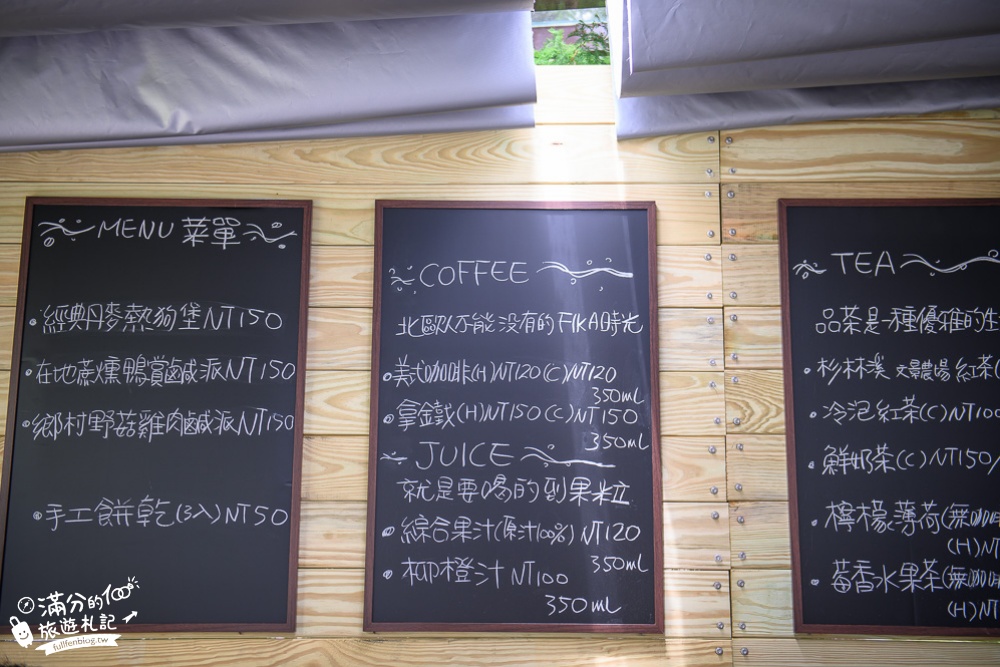 MENU 菜單
•經典丹麥熱狗堡NT150
•在地蔗燻鴨賞鹹派NT150
•鄉村野菇雞肉鹹派NT150
•手工餅乾(3入)NT50
COFFEE
北歐人不能沒有的FIKA時光
•美式咖啡(H)NT120(C)NT120
350ml
•拿鐵(H)NT150(C)NT150
350ml
JUICE
就是要喝的到果粒
•綜合果汁(原汁100%)NT120
350ml
•柳橙汁NT100
350mL
TEA
品茶是一種優雅的生
•杉林溪 紅茶(
•冷泡紅茶(C)NT100
•鮮奶茶(C)NT150/
•檸檬薄荷(無咖啡
(H)NT
•香水果茶(無咖啡
(H)NT
滿分的
旅遊札記
fullfenblog.tw